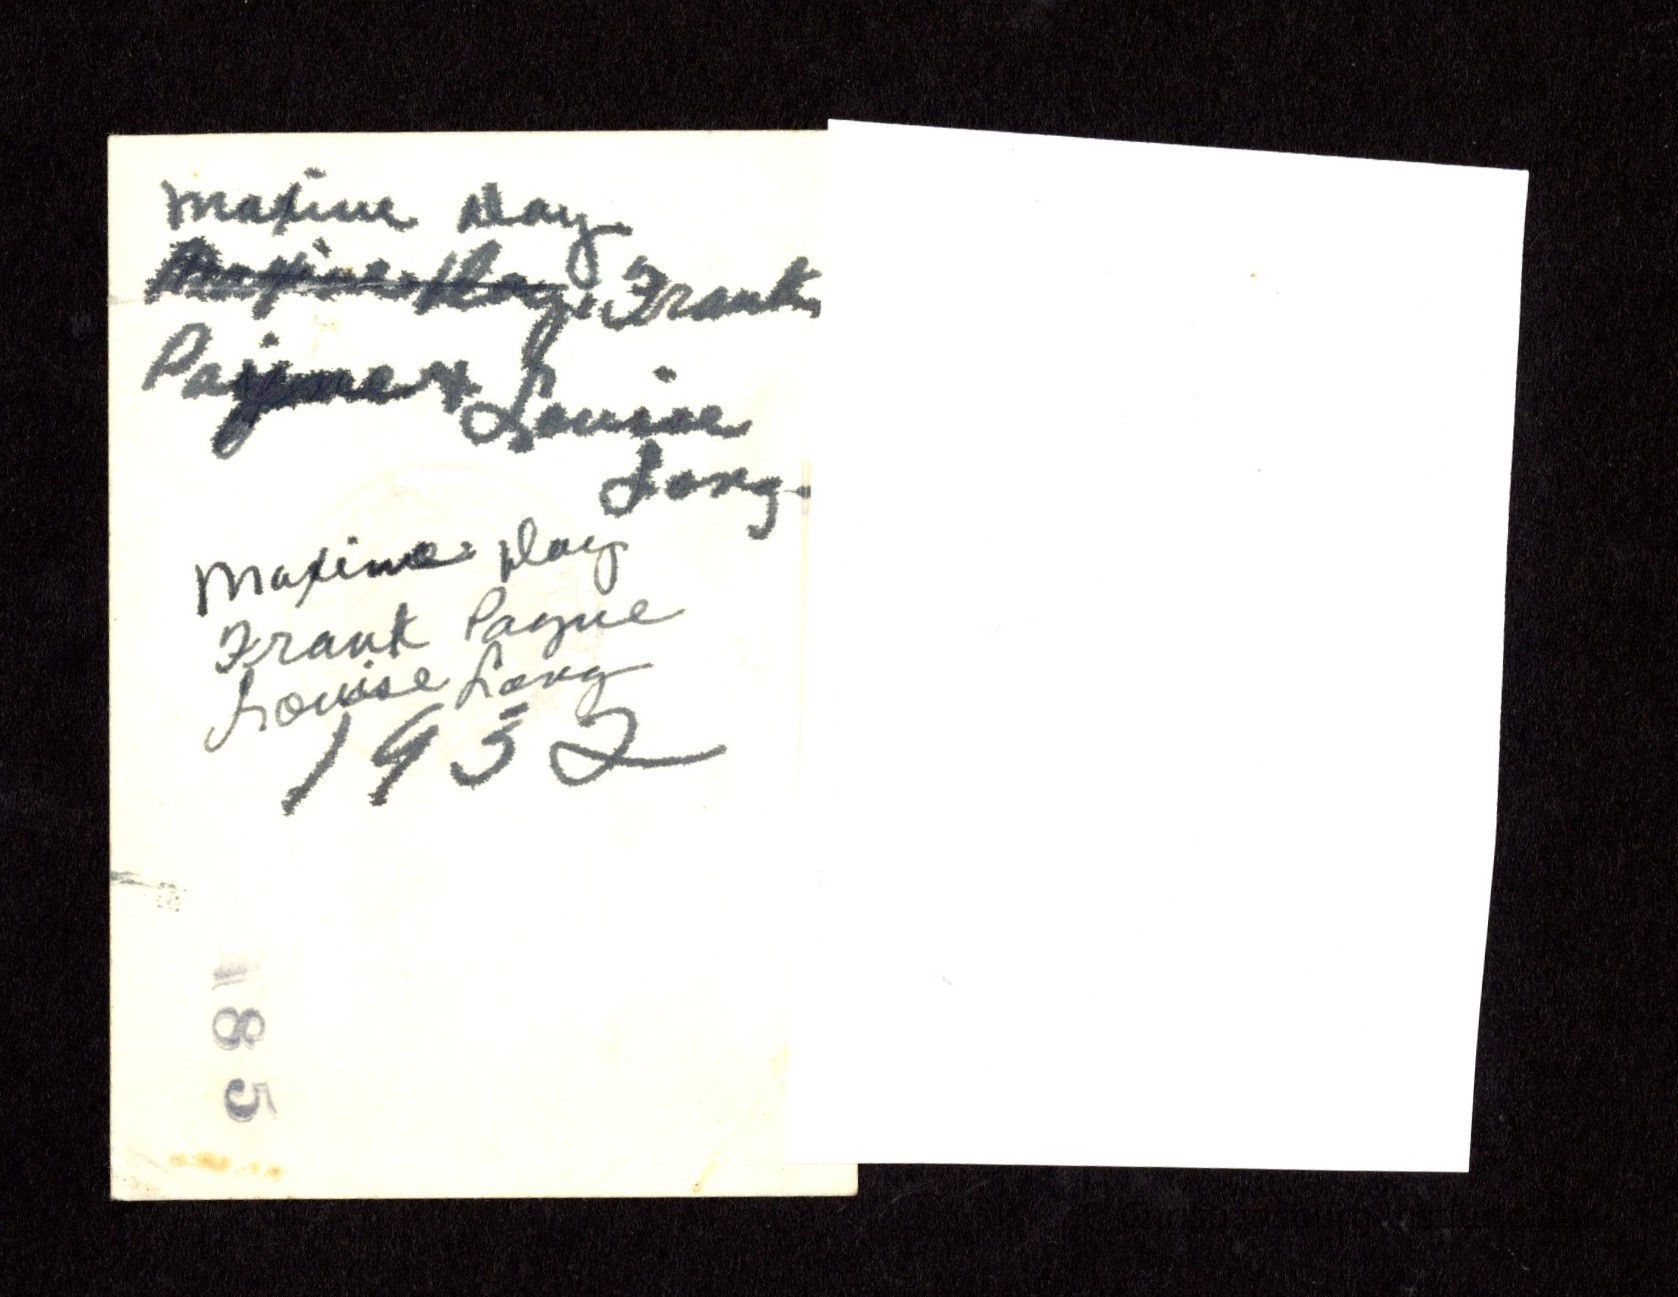 Maxine Day
Maxine Day, Frank
Payne & Louise
Long.
Maxine Day
Frank Payne
Louise Long
1932
1185